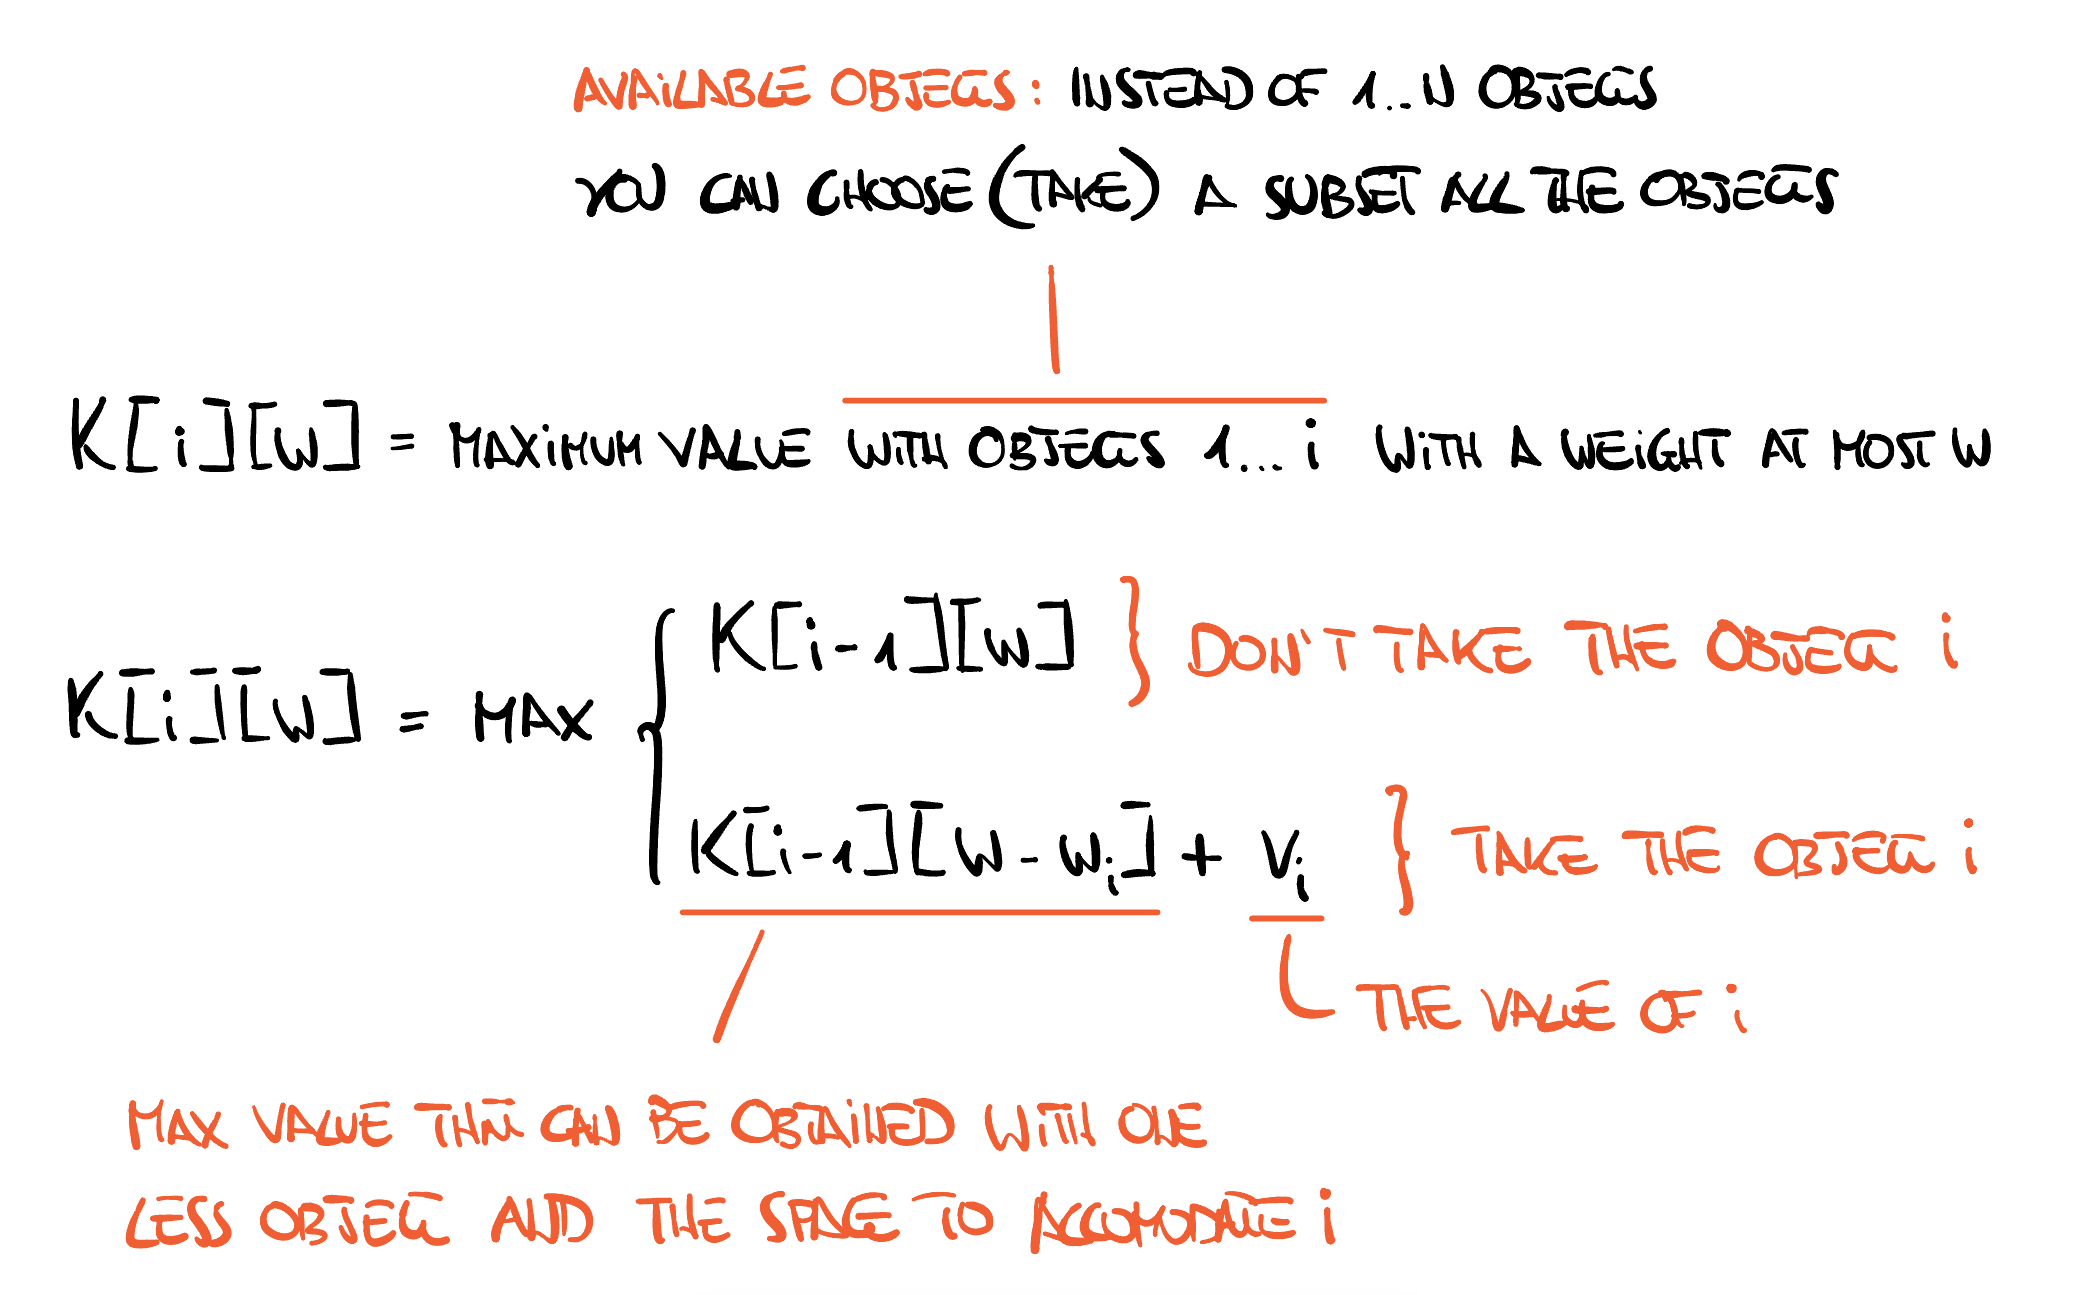 AVAILABLE OBJECTS: INSTEAD OF 1..N OBJECTS
YOU CAN CHOOSE (TAKE) A SUBSET ALL THE OBJECTS
K[i][W] = MAXIMUM VALUE WITH OBJECTS 1... i WITH A WEIGHT AT MOST W
K[i-1][W] } DON'T TAKE THE OBJECT i
K[i][W] = MAX {
K[i-1][W - wi] + Vi } TAKE THE OBJECT i
THE VALUE OF i
MAX VALUE THAT CAN BE OBTAINED WITH ONE
LESS OBJECT AND THE SPACE TO ACCOMODATE i